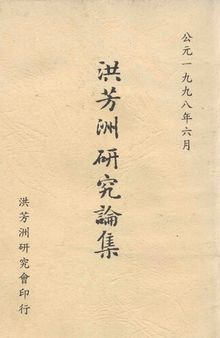 公元一九九八年六月
洪芳洲研究論集
洪芳洲研究會印行